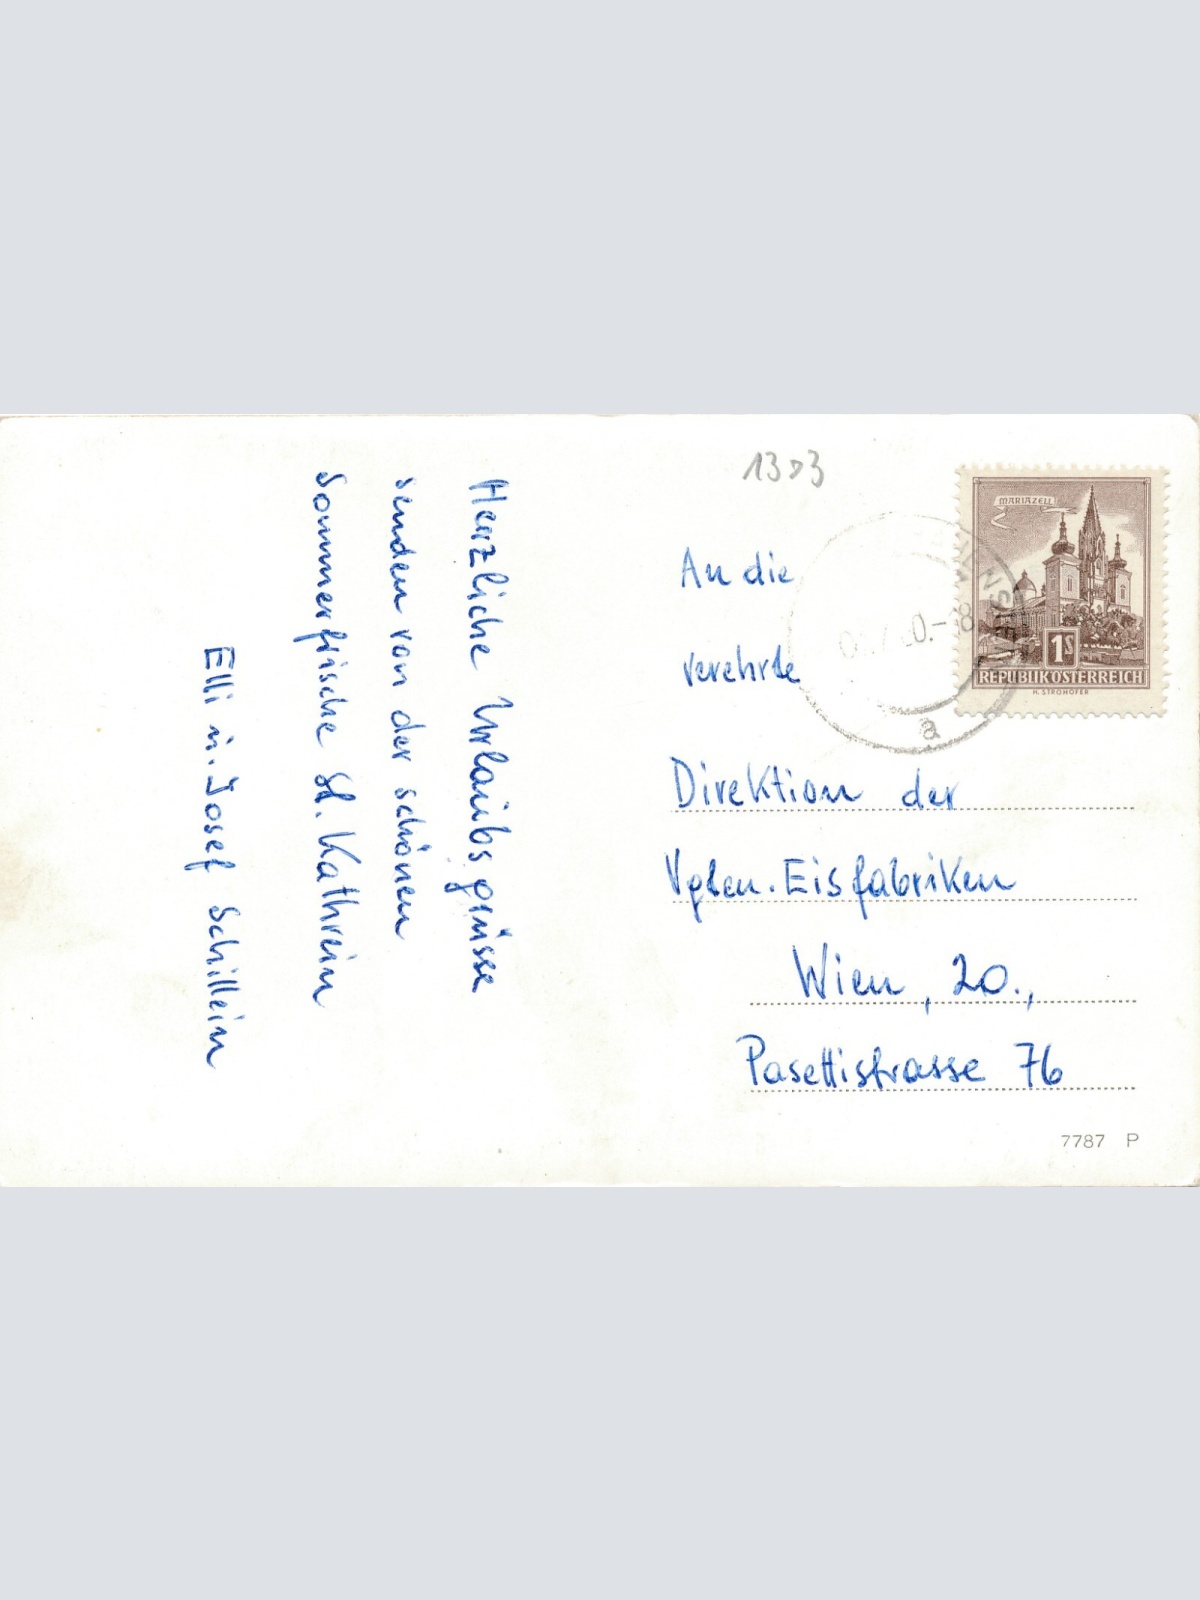 Herzliche Urlaubsgrüsse
senden von der schönen
Sommerfrische St. Kathrein
Elli u. Josef Schillein
MARIAZELL
1S
REPUBLIK ÖSTERREICH
H. STROHOFER
a
An die
verehrte
Direktion der
Vgten. Eisfabriken
Wien, 20.,
Pasettistrasse 76
7787 P